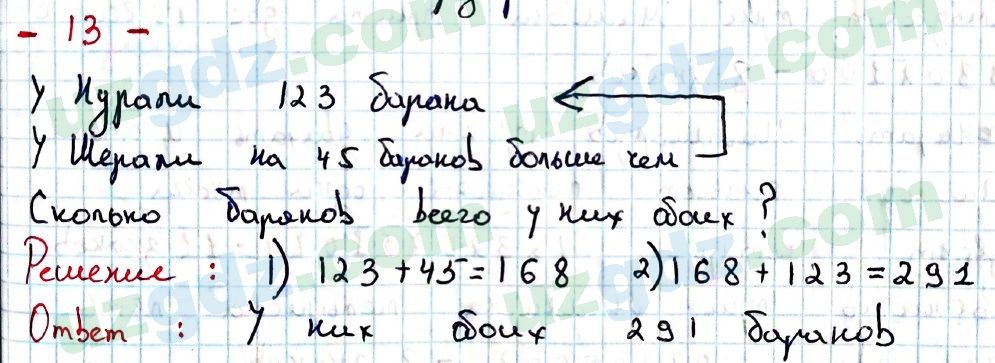 - 13 -
У Нурали 123 барана
У Шерали на 45 баранов больше чем
Сколько баранов всего у них обоих?
Решение : 1) 123 + 45 = 168 2) 168 + 123 = 291
Ответ : У них обоих 291 баранов